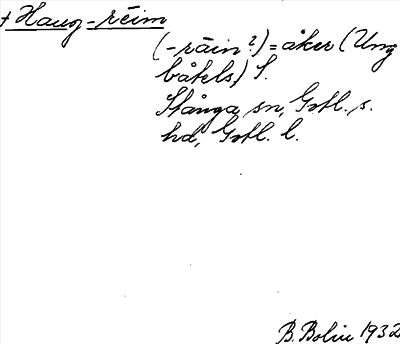 + Haug-rēim
(-rāin?) = åker (Ung
båtels) S.
Stånga sn, Gotl. s.
hd, Gotl. l.
B. Bolin 1932